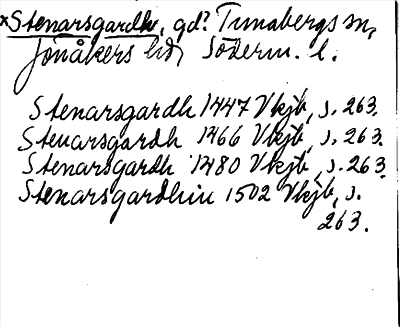 *Stenarsgardh, gd? Tunabergs sn,
Jönåkers hd, Söderm. l.
Stenarsgardh 1447 Vkjb, s. 263.
Stenarsgardh 1466 Vkjb, s. 263.
Stenarsgardh 1480 Vkjb, s. 263.
Stenarsgardhin 1502 Vkjb, s.
263.